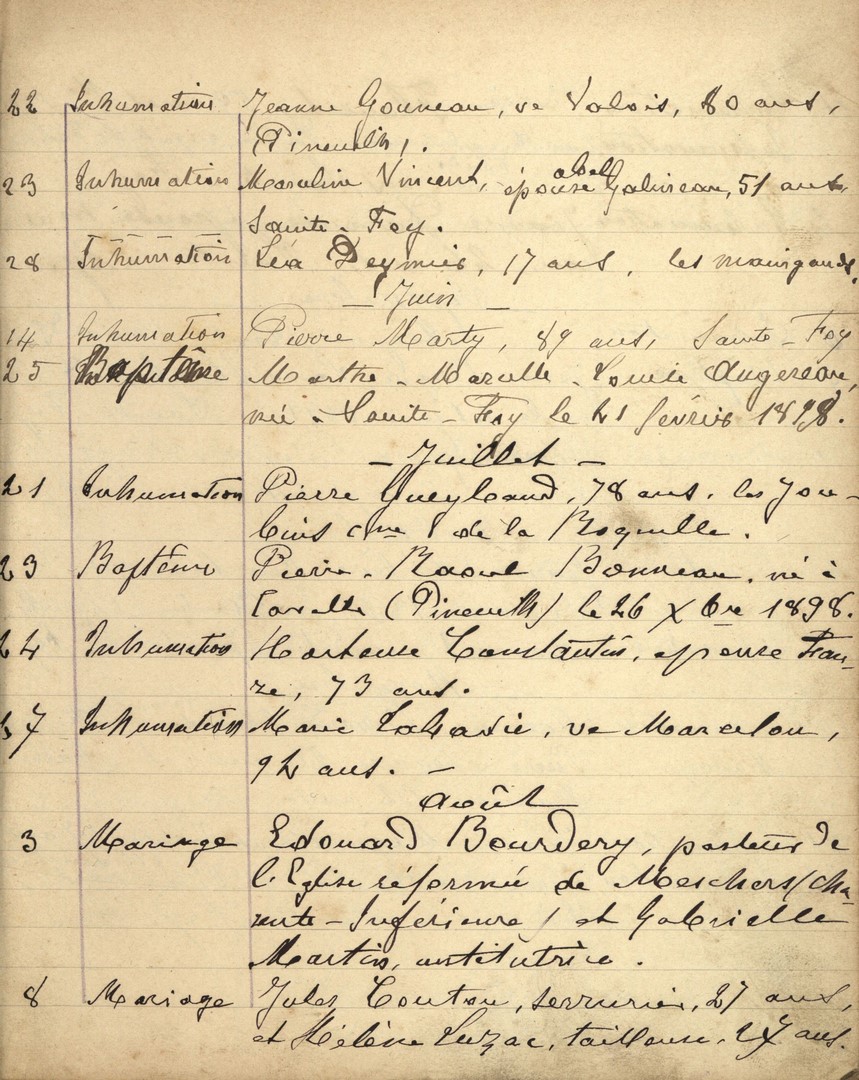 22 Inhumation Jeanne Gouneau, ve Valois, 80 ans,
(Pineuilh).
23 Inhumation Marceline Vincent, épouse abel Galineau, 51 ans,
Sainte-Foy.
28 Inhumation Léa Deymier, 17 ans, les mangauds.
- Juin -
14 Inhumation Pierre Marty, 89 ans, Sainte-Foy
25 Baptême Marthe-Marcelle-Louise Augereau,
née à Sainte-Foy le 21 février 1898.
- Juillet -
21 Inhumation Pierre Gueylaud, 78 ans, les Jou-
bins cne de la Roquille.
23 Baptême Pierre-Raoul Bonneau, né à
(Pineuilh) le 26 Xbre 1898.
24 Inhumation Hortense Constantin, epouse Fau-
re, 73 ans.
27 Inhumation Marie Labadie, ve Marcelou,
92 ans. -
août
3 Mariage Edouard Bourdery, pasteur de
l'Eglise réformée de Meschers (Cha-
rente-Inférieure) et Gabrielle
Martin, institutrice.
8 Mariage Jules Coutou, serrurier, 27 ans,
et Hélène Luzac, tailleuse, 27 ans.